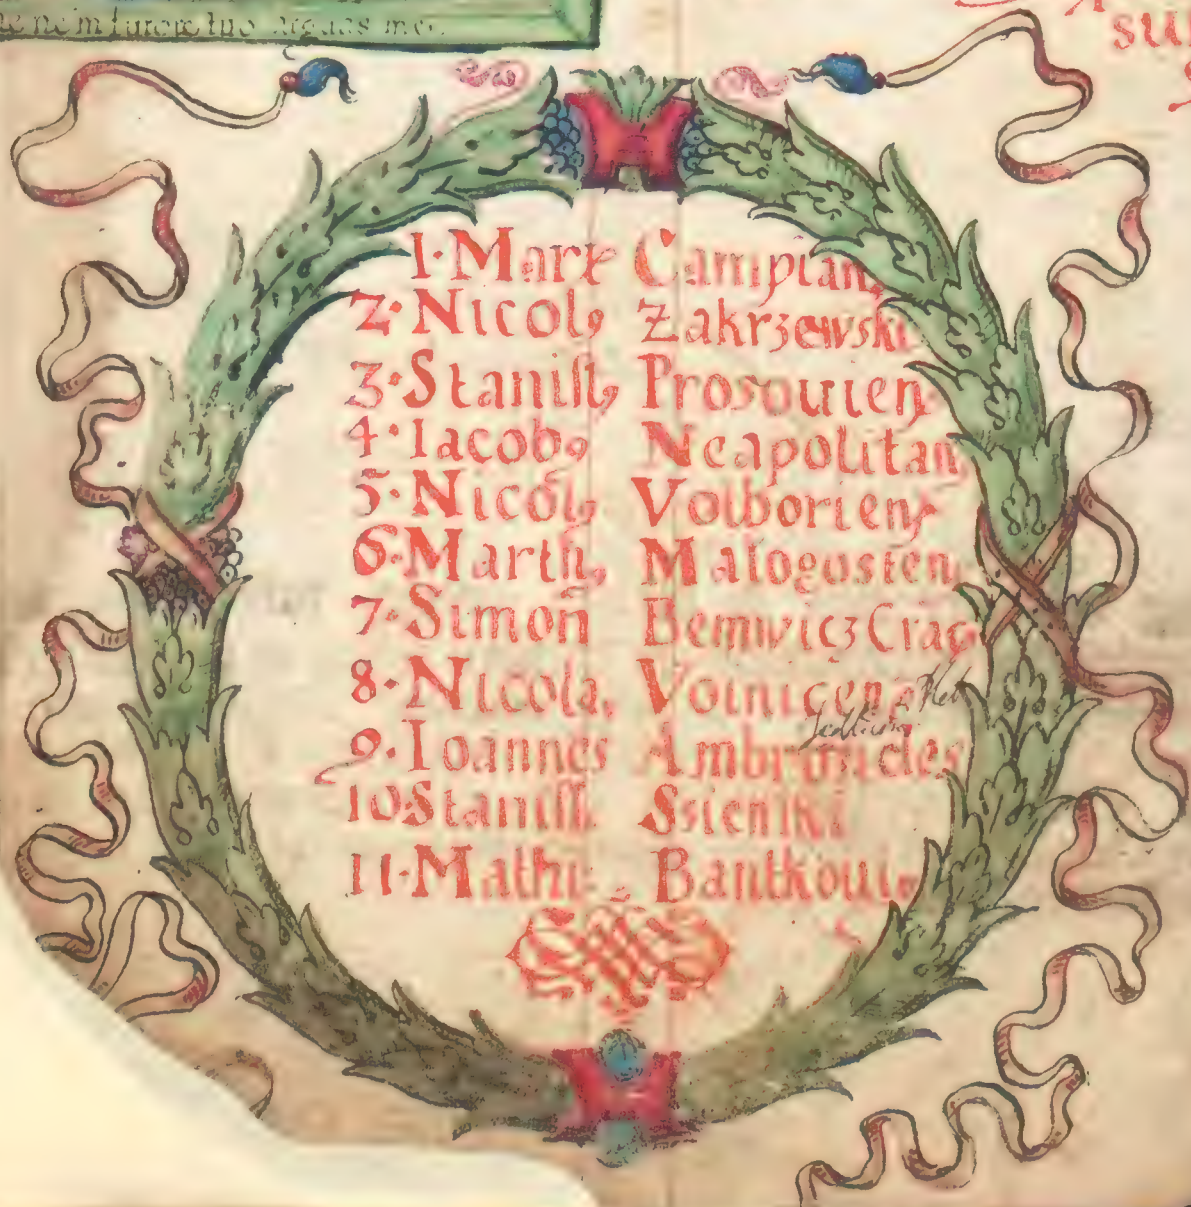 ne in furore tuo arguas me
su
1·Marx Campian
2·Nicol9 Zakrzewski
3·Stanisl9 Prosouien
4·Iacob9 Neapolitan
5·Nicol9 Volborien
6·Marth9 Malogosten
7·Simoñ Bemwicz Crac
8·Nicola9 Voinicen
9·Ioannes Ambro
10·Stanisl Ssienski
11·Math Bantkoui